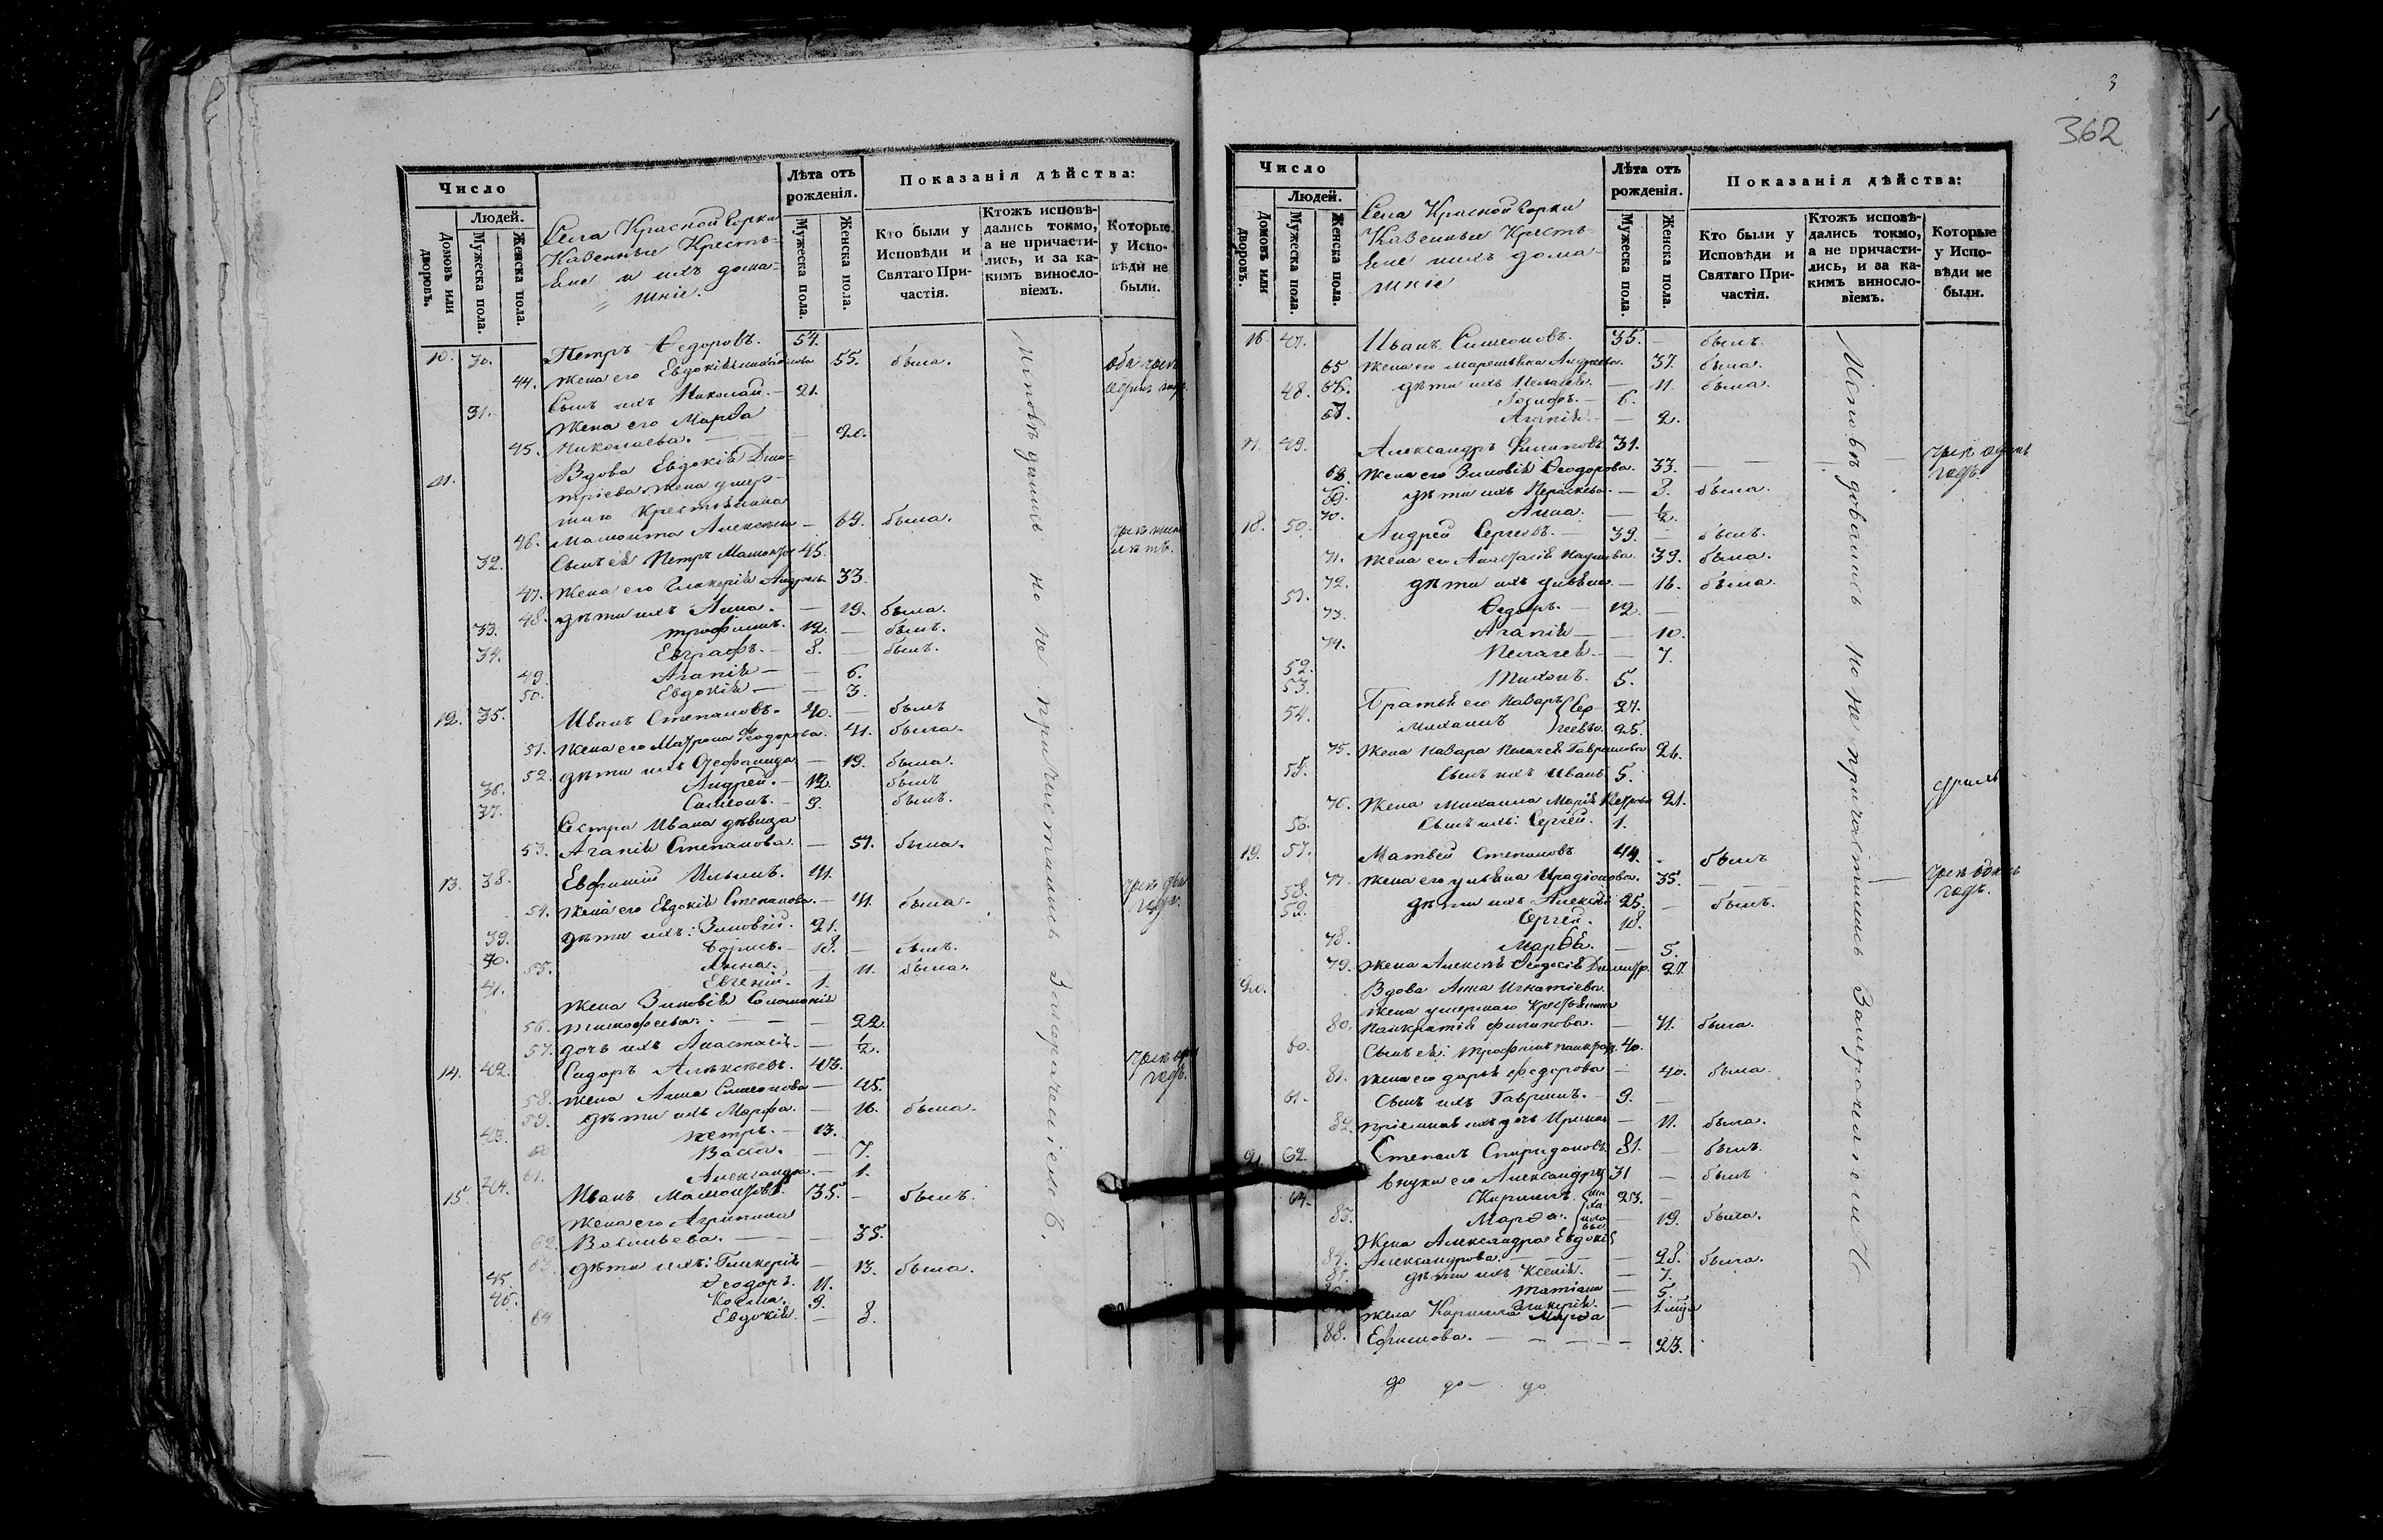 Число
Людей.
Домовъ или дворовъ.
Мужеска пола.
Женска пола.
Села Красной Горки
Казенные Кресть-
яне и ихъ дома-
шніе.
Лѣта отъ рожденія.
Мужеска пола.
Женска пола.
Показанія дѣйства:
Кто были у Исповѣди и Святаго При-частія.
Ктожъ исповѣ-дались токмо, а не причасти-лись, и за ка-кимъ виносло-віемъ.
Которые у Испо-вѣди не были.
10. 30. Петръ Ѳедоровъ. 54.
44. Жена его Евдокія 55. была.
31. Сынъ ихъ Николай. — 21.
Жена его Марѳа
45. Николаева. — — 20.
11. Вдова Евдокія Дми-
тріева жена умер-
шаго Крестьянина
46. — 69. была.
32. Сынъ ея Петръ 45.
47. Жена его Гликерія 33.
48. дѣти ихъ Анна. — 19. была.
33. Трофимъ. 12. — былъ.
34. Евграфъ. — 8. — былъ.
49. Агапія — — 6.
50. Евдокія — — 3.
12. 35. Иванъ Степановъ. 40. — былъ
51. Жена его Матрона Ѳеодорова. 41. была.
52. дѣти ихъ Стефанида — 19. была.
36. Андрей. — 12. былъ
37. Симеонъ. — 9. былъ.
Сестра Ивана дѣвица
53. Агапія Степанова. — 51. была.
13. 38. Евфимій Ильинъ. 41.
54. Жена его Евдокія Степанова. — 41. была.
39. дѣти ихъ: Зиновій. 21.
40. Борисъ. — 18. — былъ.
55. Анна. — 11. была.
41. Евгеній. 1.
Жена Зиновія Соломонія
56. Тимофеева. — — 22.
57. дочь ихъ Анастасія. — ½.
14. 42. Сидоръ Алексѣевъ. 43.
58. Жена Анна Симеонова — 45.
59. дѣти ихъ Марфа. — 16. была.
43. Петръ. — 13.
60 Васса. — 7.
61. Александра. — 1.
15. 44. Иванъ 35. — былъ.
Жена его Агрипина
62. Васильева. — — 35.
63. дѣти ихъ: Гликерія — 13. была.
45. Ѳеодоръ. 11.
46. Козма. 9.
64 Евдокія. — 8.
Исповѣдались но не причастились
3
362
Число
Людей.
Домовъ или дворовъ.
Мужеска пола.
Женска пола.
Села Красной Горки
Казенные Кресть-
яне ихъ дома-
шніе
Лѣта отъ рожденія.
Мужеска пола.
Женска пола.
Показанія дѣйства:
Кто были у Исповѣди и Святаго При-частія.
Ктожъ исповѣ-дались токмо, а не причасти-лись, и за ка-кимъ виносло-віемъ.
Которые у Испо-вѣди не были.
16. 47. Иванъ Симеоновъ. 35. — былъ.
65 Жена его Андреева. 37. была.
66. дѣти ихъ Пелагея. — 11. была.
48. Іосифъ. — 6.
67. Агапія. — — 2.
17. 49. Александръ Филиповъ. 31.
68. Жена его Зиновія Ѳеодорова. 33.
69. дѣти ихъ Параскева. — 3. была.
70. Анна. — ½.
18. 50. Андрей Сергеевъ. — 39. — былъ.
71. Жена его Анастасія Наумова. 39. была.
72. дѣти ихъ Ульяна. — 16. была.
51. Ѳедоръ. — 12. —
73. Агапія — — 10.
74. Пелагея. — — 7.
52. Тихонъ. 5.
53. Братья его Назаръ Сер- 27.
54. Михаилъ геевы. 25.
75. Жена Назара Пелагея Гаврилова 26.
55. Сынъ ихъ Иванъ 5.
76. Жена Михаила Марія Петрова 21.
56. Сынъ ихъ: Сергей. 1.
19. 57. Матвей Степановъ 44. былъ
77. Жена его Ульяна Иродіонова. 35.
58. дѣти ихъ Алексѣй 25. — былъ.
59. Сергей. 18.
78. Марѳа. — 5.
79. Жена Алексѣя Ѳеодосія 27.
20. Вдова Анна Игнатіева
Жена умершаго Крестьянина
80. Панкратія Филипова. — 71. была.
60. Сынъ ея: Трофимъ 40.
81. Жена его Дарья Ѳедорова — 40. была.
61. Сынъ ихъ Гаврилъ. — 9. —
82. дочь Ирина — 11. была.
21. 62. Степанъ Спиридоновъ. 81. — былъ.
Внуки его Александръ 31 — былъ
64. Кирилъ. 23. —
83. Марѳа. — 19. была.
Жена Александра Евдокія
84. Александрова. — — 28. была.
85. дѣти ихъ Ксенія. — 7.
Татіана — 5.
Гликерія. —
Жена Кирила Марѳа
88. Ефимова. — — — — 23.
Исповѣдовались но не причастились
до до — до